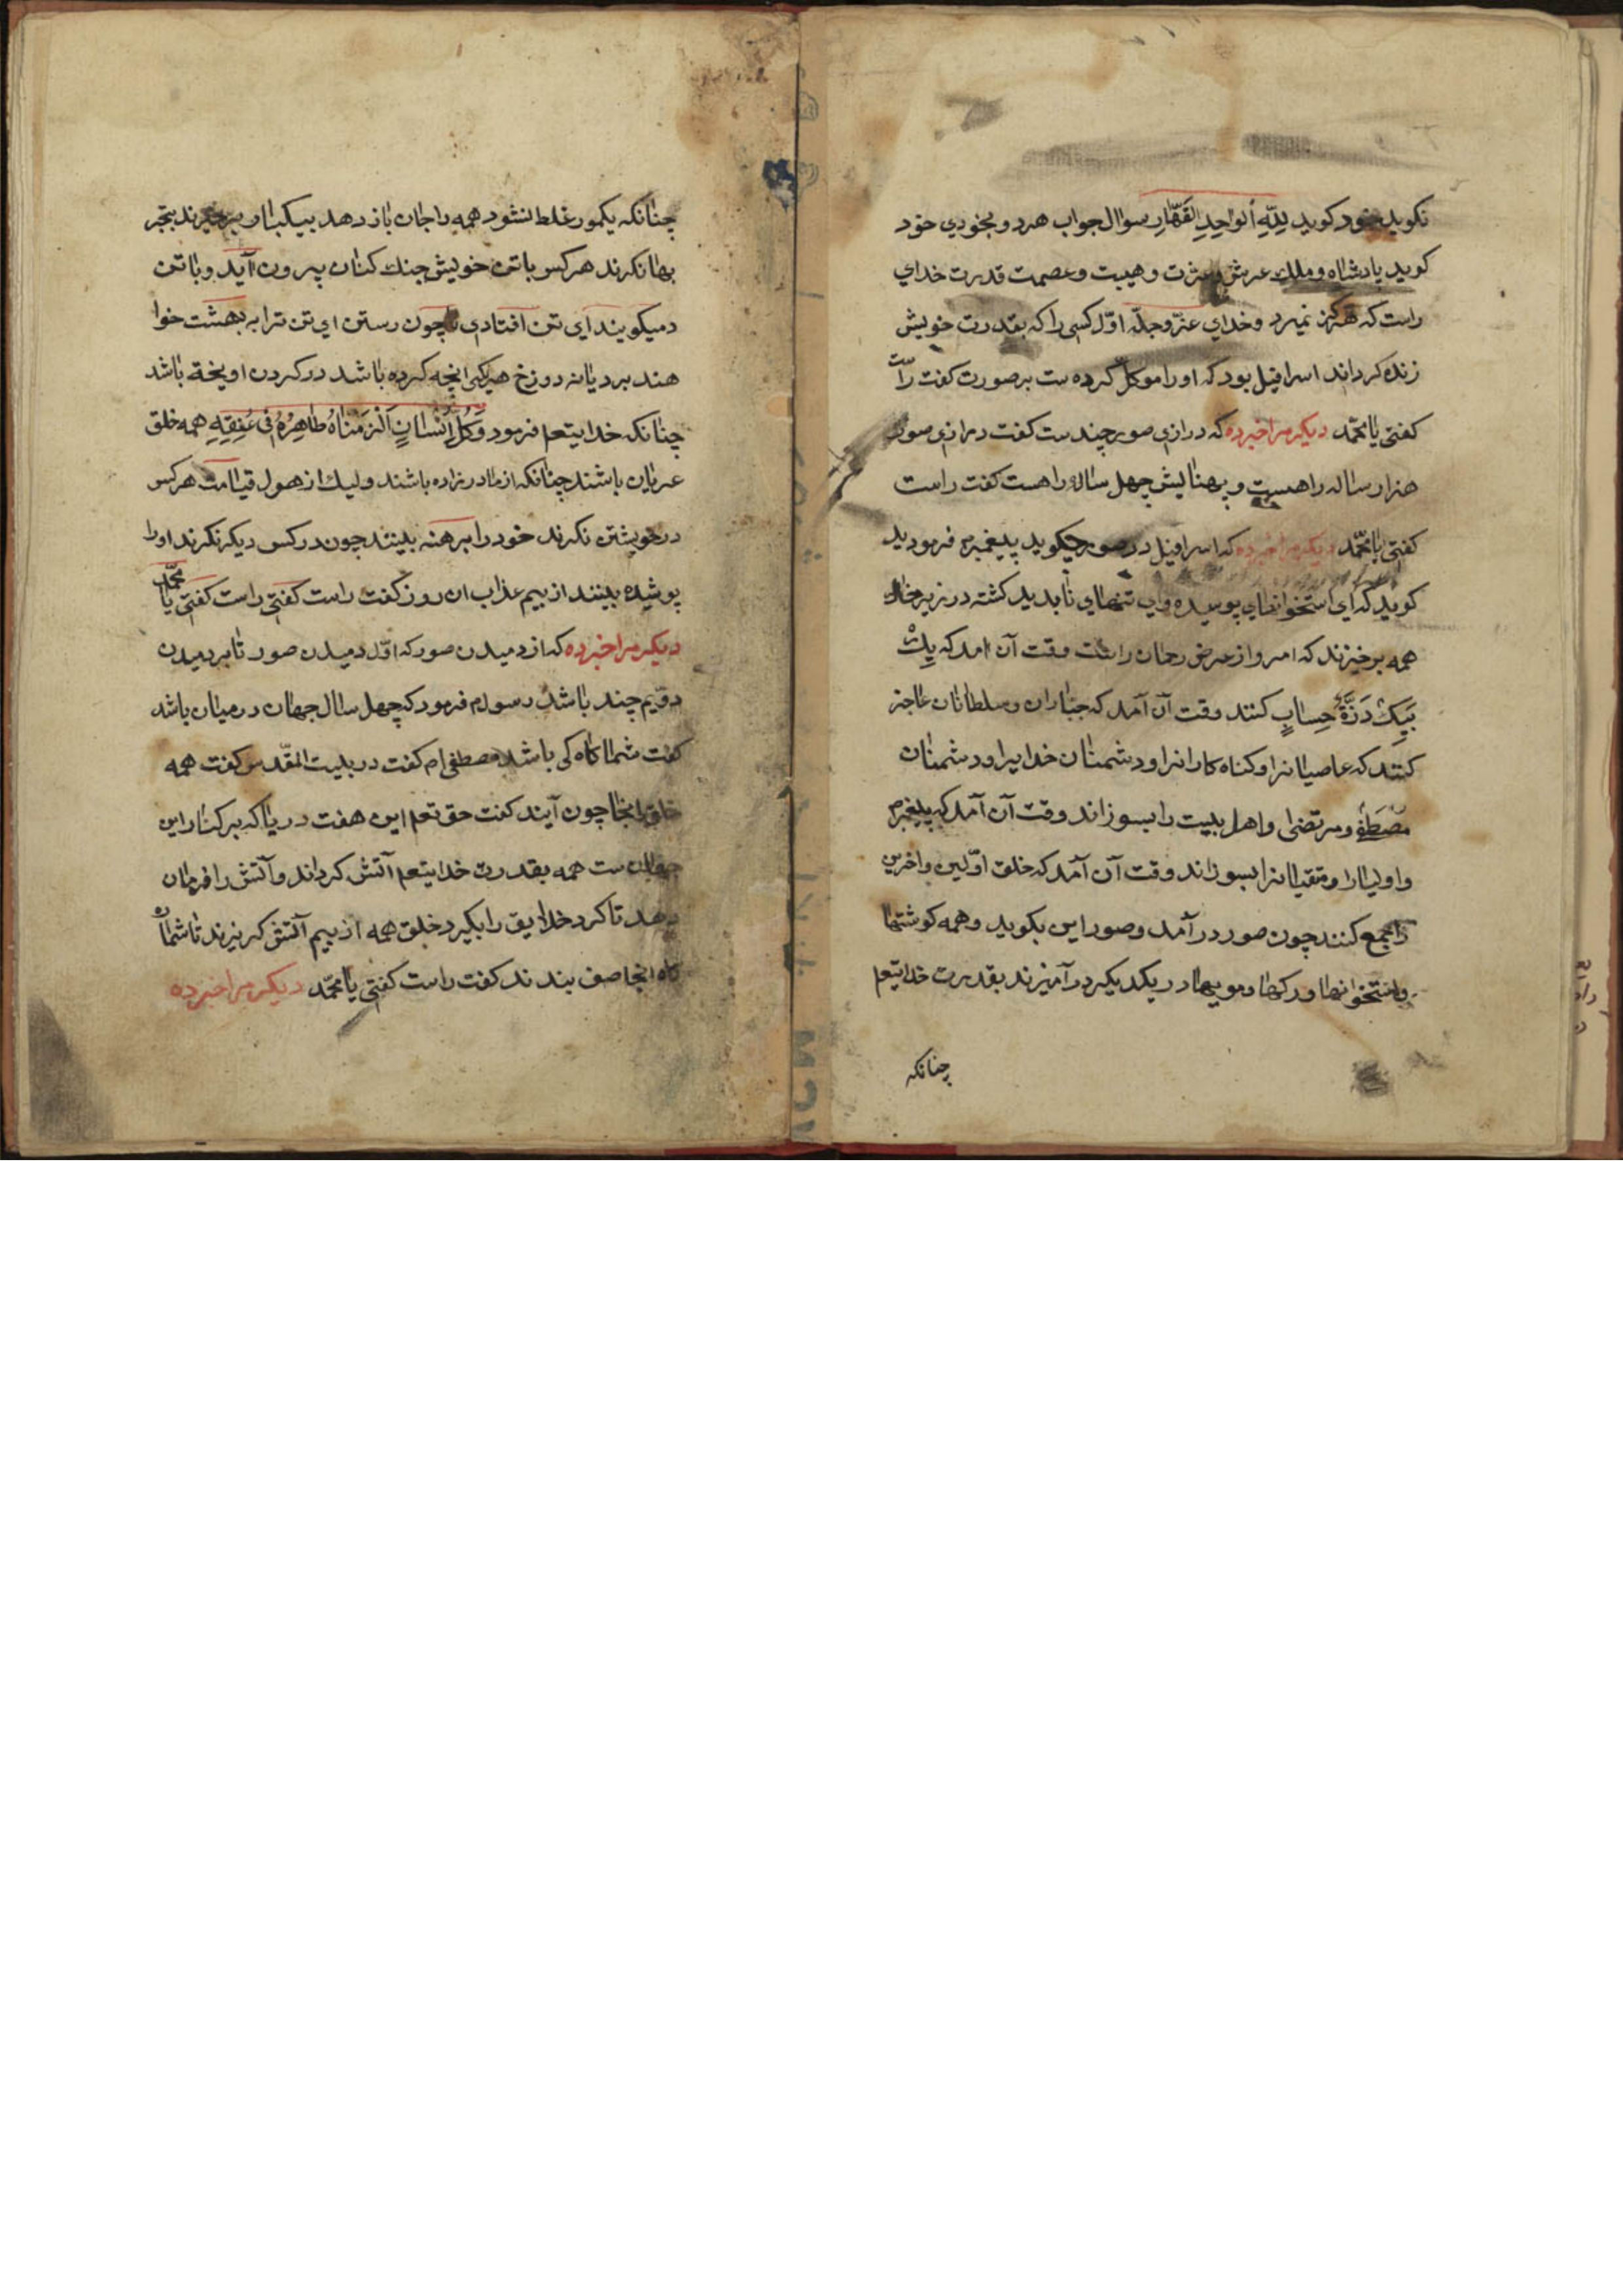 نکوید بخود کوید لِلّهِ اَلْواحِدِ القَهّارِ سوال جواب هرد و بخودي خود
کوید پادشاه و ملك عرش و عزت و هیبت و عصمت قدرت خدای
راست که هرکز نمیرد و خدای عزّ وجلّ اوّل کسی را که بقدرت خویش
زنده کرداند اسرافیل بود که او را موکل کرده ست بر صورت کفت راست
کفتی یا محمّد دیکر مرا خبر ده که درازی صور چندست کفت درازی صور
هزار ساله راهست و پهنایش چهل ساله راهست کفت راست
کفتی یا محمّد دیکر مرا خبر ده که اسرافیل در صور چیکوید پیغمبرم فرمودید
کوید که ای استخوانهای پوسیده وای تنهاي نابدید کشته در زیر خاك
همه برخیزند که امروز عرض رحمان راست وقت آن امد که یك
بیَك ذرّة حِساب کنند وقت آن آمد که جبّاران و سلطانان عاجز
کنند که عاصیانرا و کناه کارانرا و دشمنان خدایرا و دشمنان
مصطفی و مرتضی و اهل بیت را بسوزاند وقت آن آمد که پیغمبرم
و اولیارا و متقیانرا بسوزاند وقت آن آمد که خلق اوّلین و اخرین
را جمع کنند چون صور در آمد و صور این بکوید و همه کوشتها
و استخوانها و رکها و مویها در یکدیکر در آمیزند بقدرت خدایتعم
چنانکه
چنانکه یکمور غلط نشود همه را جان باز دهد بیکبار برخیزند بتحیر
بهم نکرند هر کس با تن خویش جنك کنان بیرون آید و با تن
دمیکویند ای تن افتادی تا چون رستن ای تن ترا به بهشت خوا
هند برد یا به دوزخ هر یکی انچه کرده باشد در کردن اویخته باشد
چنانکه خدایتعم فرمود وَکُلَّ اِنْسانٍ اَلْزَمْناهُ طاهِرُهُ فی عُنِقِهِ همه خلق
عریان باشند چنانکه از مادر زاده باشند ولیك از هول قیامت هر کس
در خویشتن نکرند خود را برهنه بینند چون در کس دیکر نکرند اورا
پوشیده بینند از بیم عذاب ان روز کفت راست کفتی راست کفتی یا محمّد
دیکر مرا خبر ده که از دمیدن صور که اوّل دمیدن صور تا بر دمیدن
دوّیم چند باشد رسولم فرمود که چهل سال جهان در میان باشد
کفت شما کاه کی باشد مصطفی ام کفت در بیت المقدس کفت همه
خلق انجا چون آیند کفت حق تعم این هفت دریا که بر کنار این
جهان ست همه بقدرت خدایتعم آتش کرداند و آتش را فرمان
دهد تا کرد خلایق را بکیرد خلق همه از بیم آتش کریزند تا شما
کاه انجا صف بندند کفت راست کفتی یا محمّد دیکر مرا خبر ده